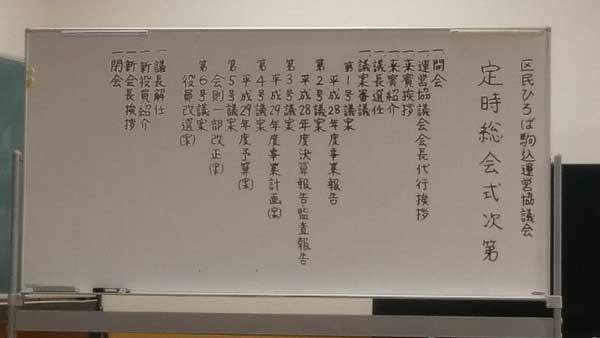 区民ひろば駒込運営協議会
定時総会式次第
一、開会
一、運営協議会会長代行挨拶
一、来賓挨拶
一、来賓紹介
一、議長選任
一、議案審議
第1号議案
平成28年度事業報告
第2号議案
平成28年度決算報告監査報告
第3号議案
平成29年度事業計画(案)
第4号議案
平成29年度予算(案)
第5号議案
会則一部改正(案)
第6号議案
役員改選(案)
一、議長解任
一、新役員紹介
一、新会長挨拶
一、閉会